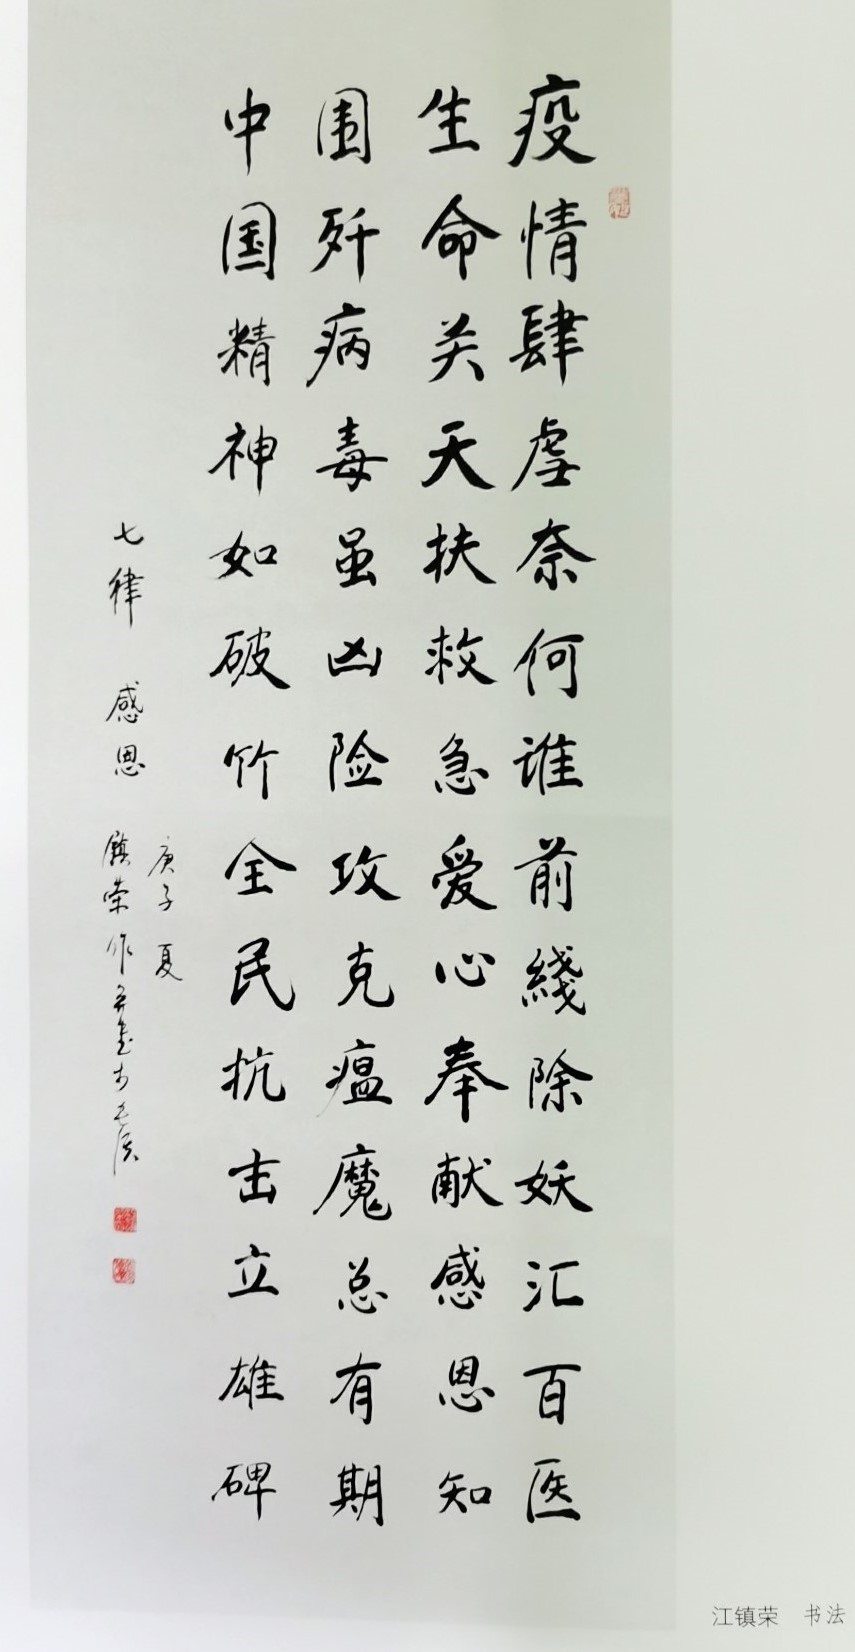 疫情肆虐奈何谁前綫除妖汇百医
生命关天扶救急爱心奉献感恩知
围歼病毒虽凶险攻克瘟魔总有期
中国精神如破竹全民抗击立雄碑
庚子夏
七律 感恩 镇荣作并书于
江镇荣 书法